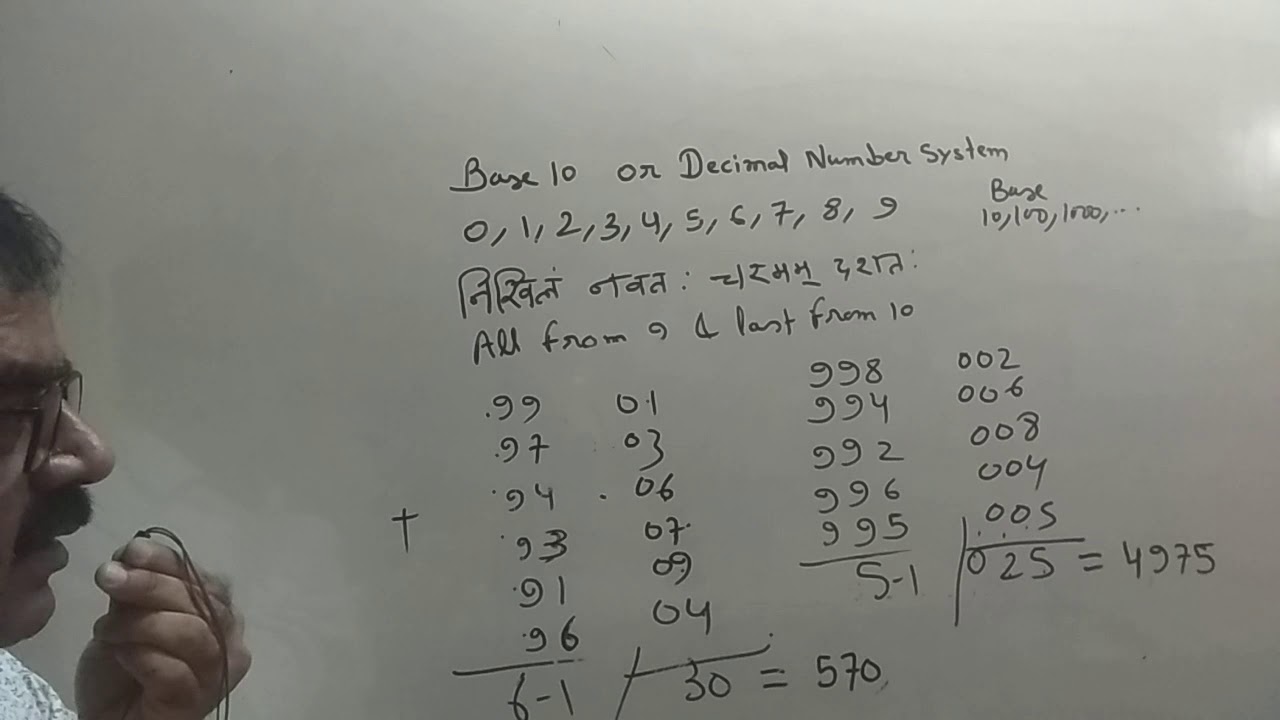 Base 10 or Decimal Number System
0, 1, 2, 3, 4, 5, 6, 7, 8, 9
Base
10, 100, 1000, ...
निखिलं नवत: चरमम् दशत:
All from 9 & last from 10
.99 01
.97 03
.94 . 06
+ .93 07
.91 09
.96 04
6-1 / 30 = 570
998 002
994 006
992 008
996 004
995 005
5-1 / 025 = 4975